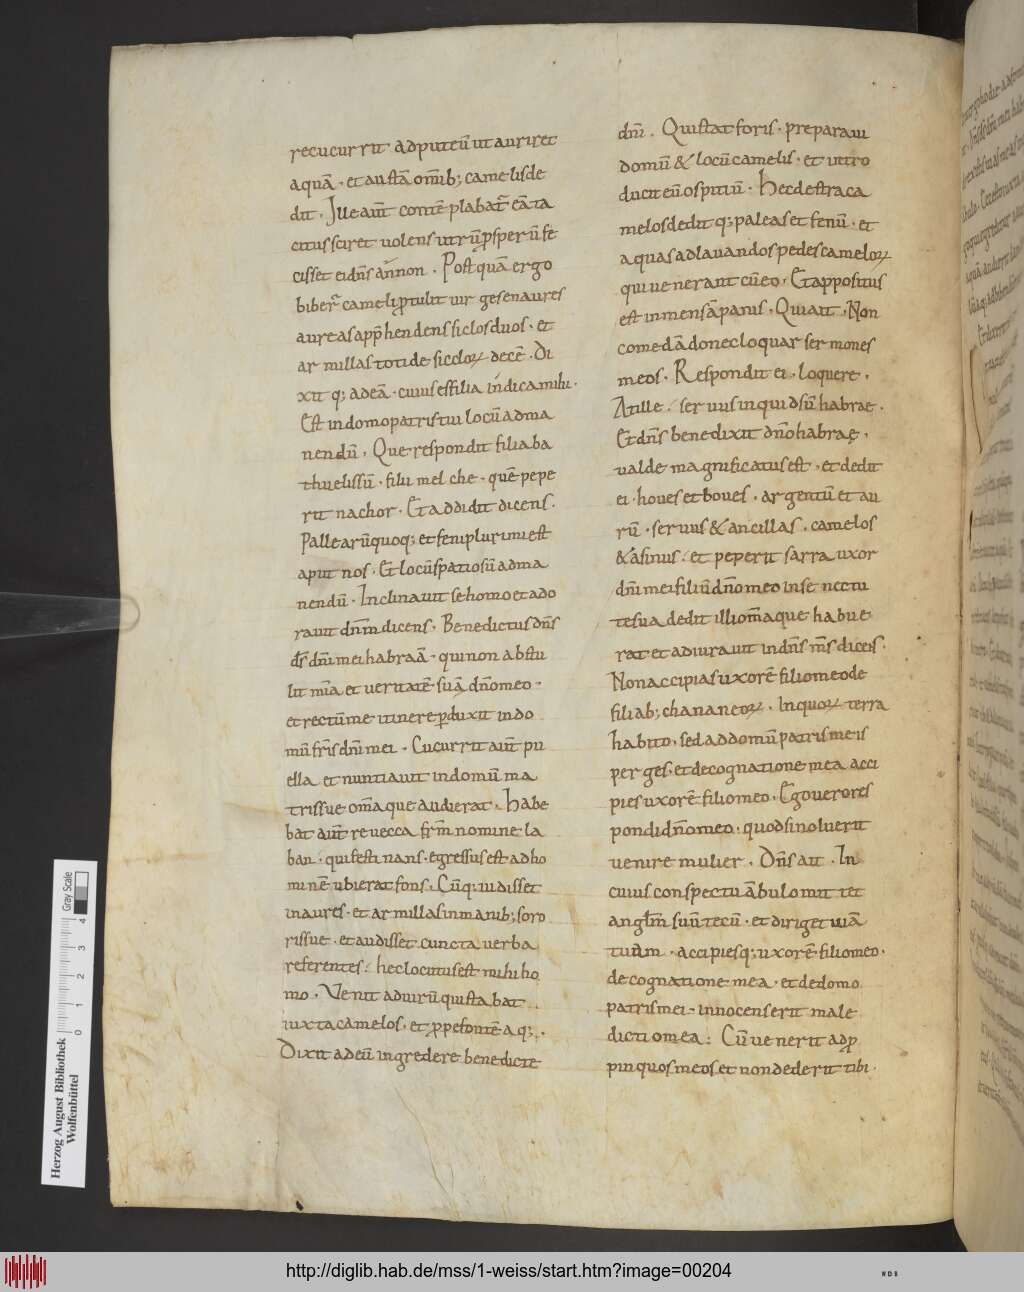 recucurrit adputeū utauriret
aquā · et austā om̄ib; camelisde
dit · Ille aut̄ contēplabat̄ eā ta
citus sciret uolens utrū ꝓsperū fe
cisset ei dn̄s an non · Postquā ergo
biber̄ cameli ꝓtulit uir gesenaures
aureas app̄hendens siclosduos · et
armillas totide siclorꝝ decē · Di
xit q; adeā · cuius esfilia indicamihi ·
Est indomopatris tui locū adma
nendū · Que respondit filiaba
thuelissū · filii melche · quē pepe
rit nachor · Et addidit dicens ·
Pallearū quoq; et feniplurimi est
aput nos · Et locus spatiosū adma
nendū · Inclinauit sehomo et ado
rauit dn̄m dicens · Benedictus dn̄s
ds̄ dn̄i mei habraā · qui non abstu
lit mīa et ueritatē suā dn̄o meo ·
et rectū me itinere ꝑduxit indo
mū fr̄is dn̄i mei · Cucurrit aut̄ pu
ella et nuntiauit indomū ma
trissue om̄a que audierat · habe
bat aut̄ reuecca fr̄m nomine la
ban · qui festinans · egressus est adho
minē ubi erat fons · Cūq; uidisset
inaures · et armillas inmanib; soro
rissue · et audisset cuncta uerba
referentes · hec locutus est mihi ho
mo · Venit aduirū qui stabat
iuxta camelos · et ꝓpe fontē aq; ·
Dixit adeū ingredere benedicte
dn̄i · Qui stat foris · preparaui
domū & locū camelis · et intro
ducit eū ospitiū · hec destraca
melos dedit q; paleas et fenū · et
aquas adlauandos pedes camelorꝝ
qui uenerant cū eo · Et appositus
est inmensā panis · Qui ait · Non
comedā donec loquar sermones
meos · Respondit ei · loquere ·
At ille · seruus inquid sū habrae ·
Et dn̄s benedixit dn̄o habrae ·
ualde magnificatus est · et dedit
ei · houes et boues · argentū et au
rū · seruus & ancillas · camelos
& asinus · et peperit sarra uxor
dn̄i mei filiū dn̄o meo insenectu
te sua dedit illi om̄a que habue
rat et adiurauit in dn̄s m̄s dices ·
Non accipias uxorē filio meo de
filiab; chananeorꝝ · In quorꝝ terra
habito · sed addomū patris meis
perges · et decognatione mea acci
pies uxorē filio meo · Ego uero res
pondi dn̄o meo · quod si noluerit
uenire mulier · Dn̄s ait · In
cuius conspectu ābulo mittet
angl̄m suū tecū · et diriget uiā
tuam · accipiesq; uxorē filio meo ·
de cognatione mea · et dedomo
patris mei · innocens erit male
dictio mea : Cū uenerit adꝓ
pinquos meos et non dederit tibi ·
Herzog August Bibliothek
Wolfenbüttel
0 1 2 3 4
Gray Scale
http://diglib.hab.de/mss/1-weiss/start.htm?image=00204